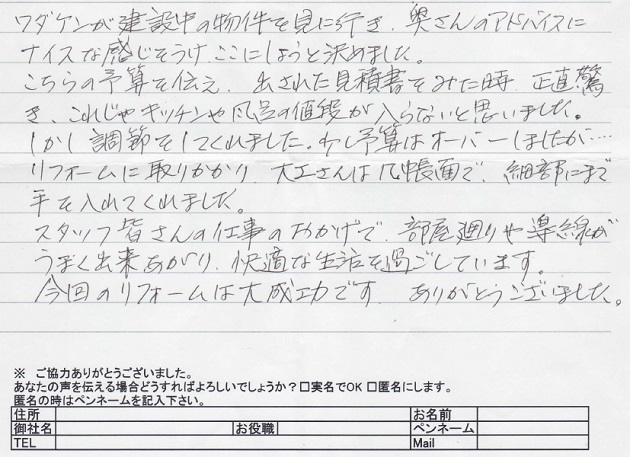 ワダケンが建設中の物件を見に行き、奥さんのアドバイスに
ナイスな感じをうけ、ここにしようと決めました。
こちらの予算を伝え、出された見積書をみた時、正直驚
き、これじゃキッチンや風呂の値段が入らないと思いました。
しかし調節をしてくれました。少し予算はオーバーしましたが…
リフォームに取りかかり、大工さんは几帳面で、細部にまで
手を入れてくれました。
スタッフ皆さんの仕事のおかげで、部屋廻りや導線が
うまく出来あがり、快適な生活を過ごしています。
今回のリフォームは大成功です。ありがとうございました。
※ ご協力ありがとうございました。
あなたの声を伝える場合どうすればよろしいでしょうか？□実名でOK □匿名にします。
匿名の時はペンネームを記入下さい。
住所 お名前
御社名 お役職 ペンネーム
TEL Mail